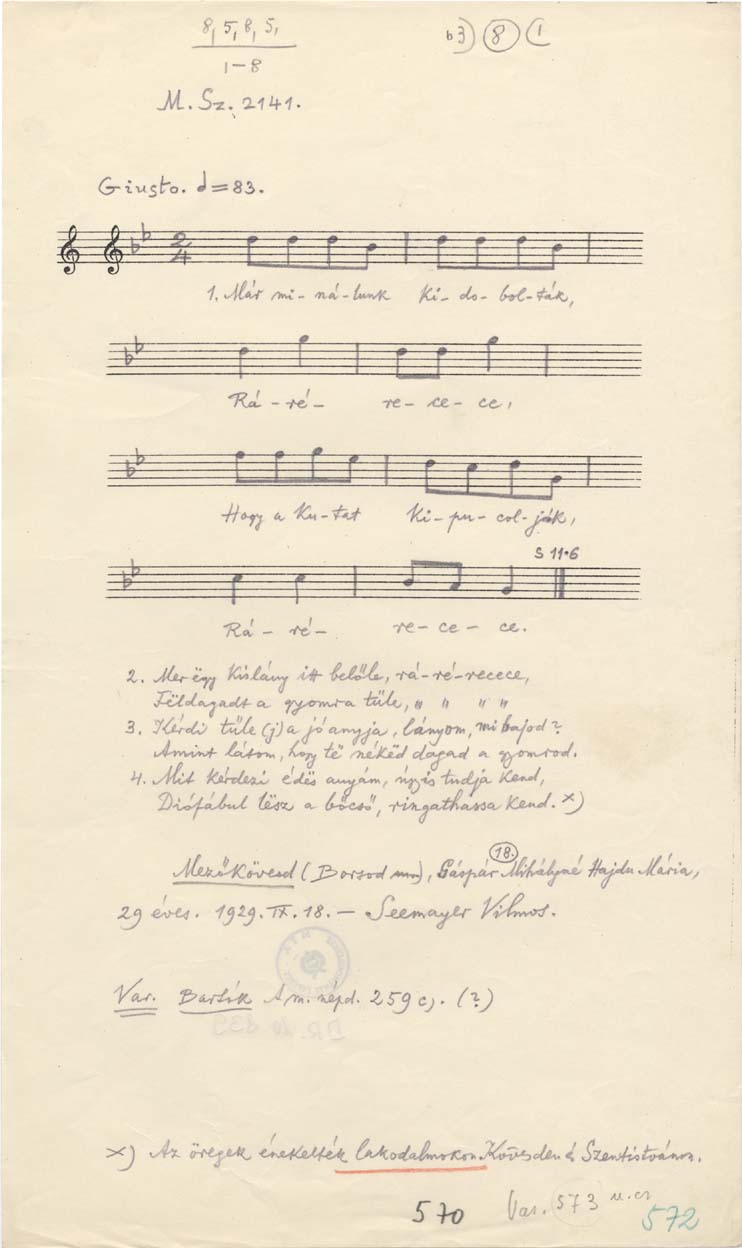 8, 5, 8, 5,
1-8
b3) 8 (1
M. Sz. 2141.
Giusto. d=83.
2/4
1. Már mi-ná-lunk Ki-do-bol-ták,
Rá-ré- re-ce-ce,
Hogy a Ku-tat Ki-pu-col-ják,
S 11·6
Rá-ré- re-ce-ce.
2. Mer ëgy Kislány itt belőle, rá-ré-recece,
Fëldagadt a gyomra tűle, " " " "
3. Kérdi tűle (j)a jó anyja, lányom, mi bajod?
Amint látom, hogy të nékëd dagad a gyomrod.
4. Mit kérdezi édës anyám, úgyis tudja kend,
Diófábul lësz a bőcső, ringathassa Kend. x)
18.
Mezőkövesd (Borsod m.), Gáspár Mihályné Hajdu Mária,
29 éves. 1929. IX. 18. — Seemayer Vilmos.
Var. Bartók A m. népd. 259 c). (?)
x) Az öregek énekelték lakodalmokon Kövesden és Szentistvánon.
570 Var. 573 u. ez 572